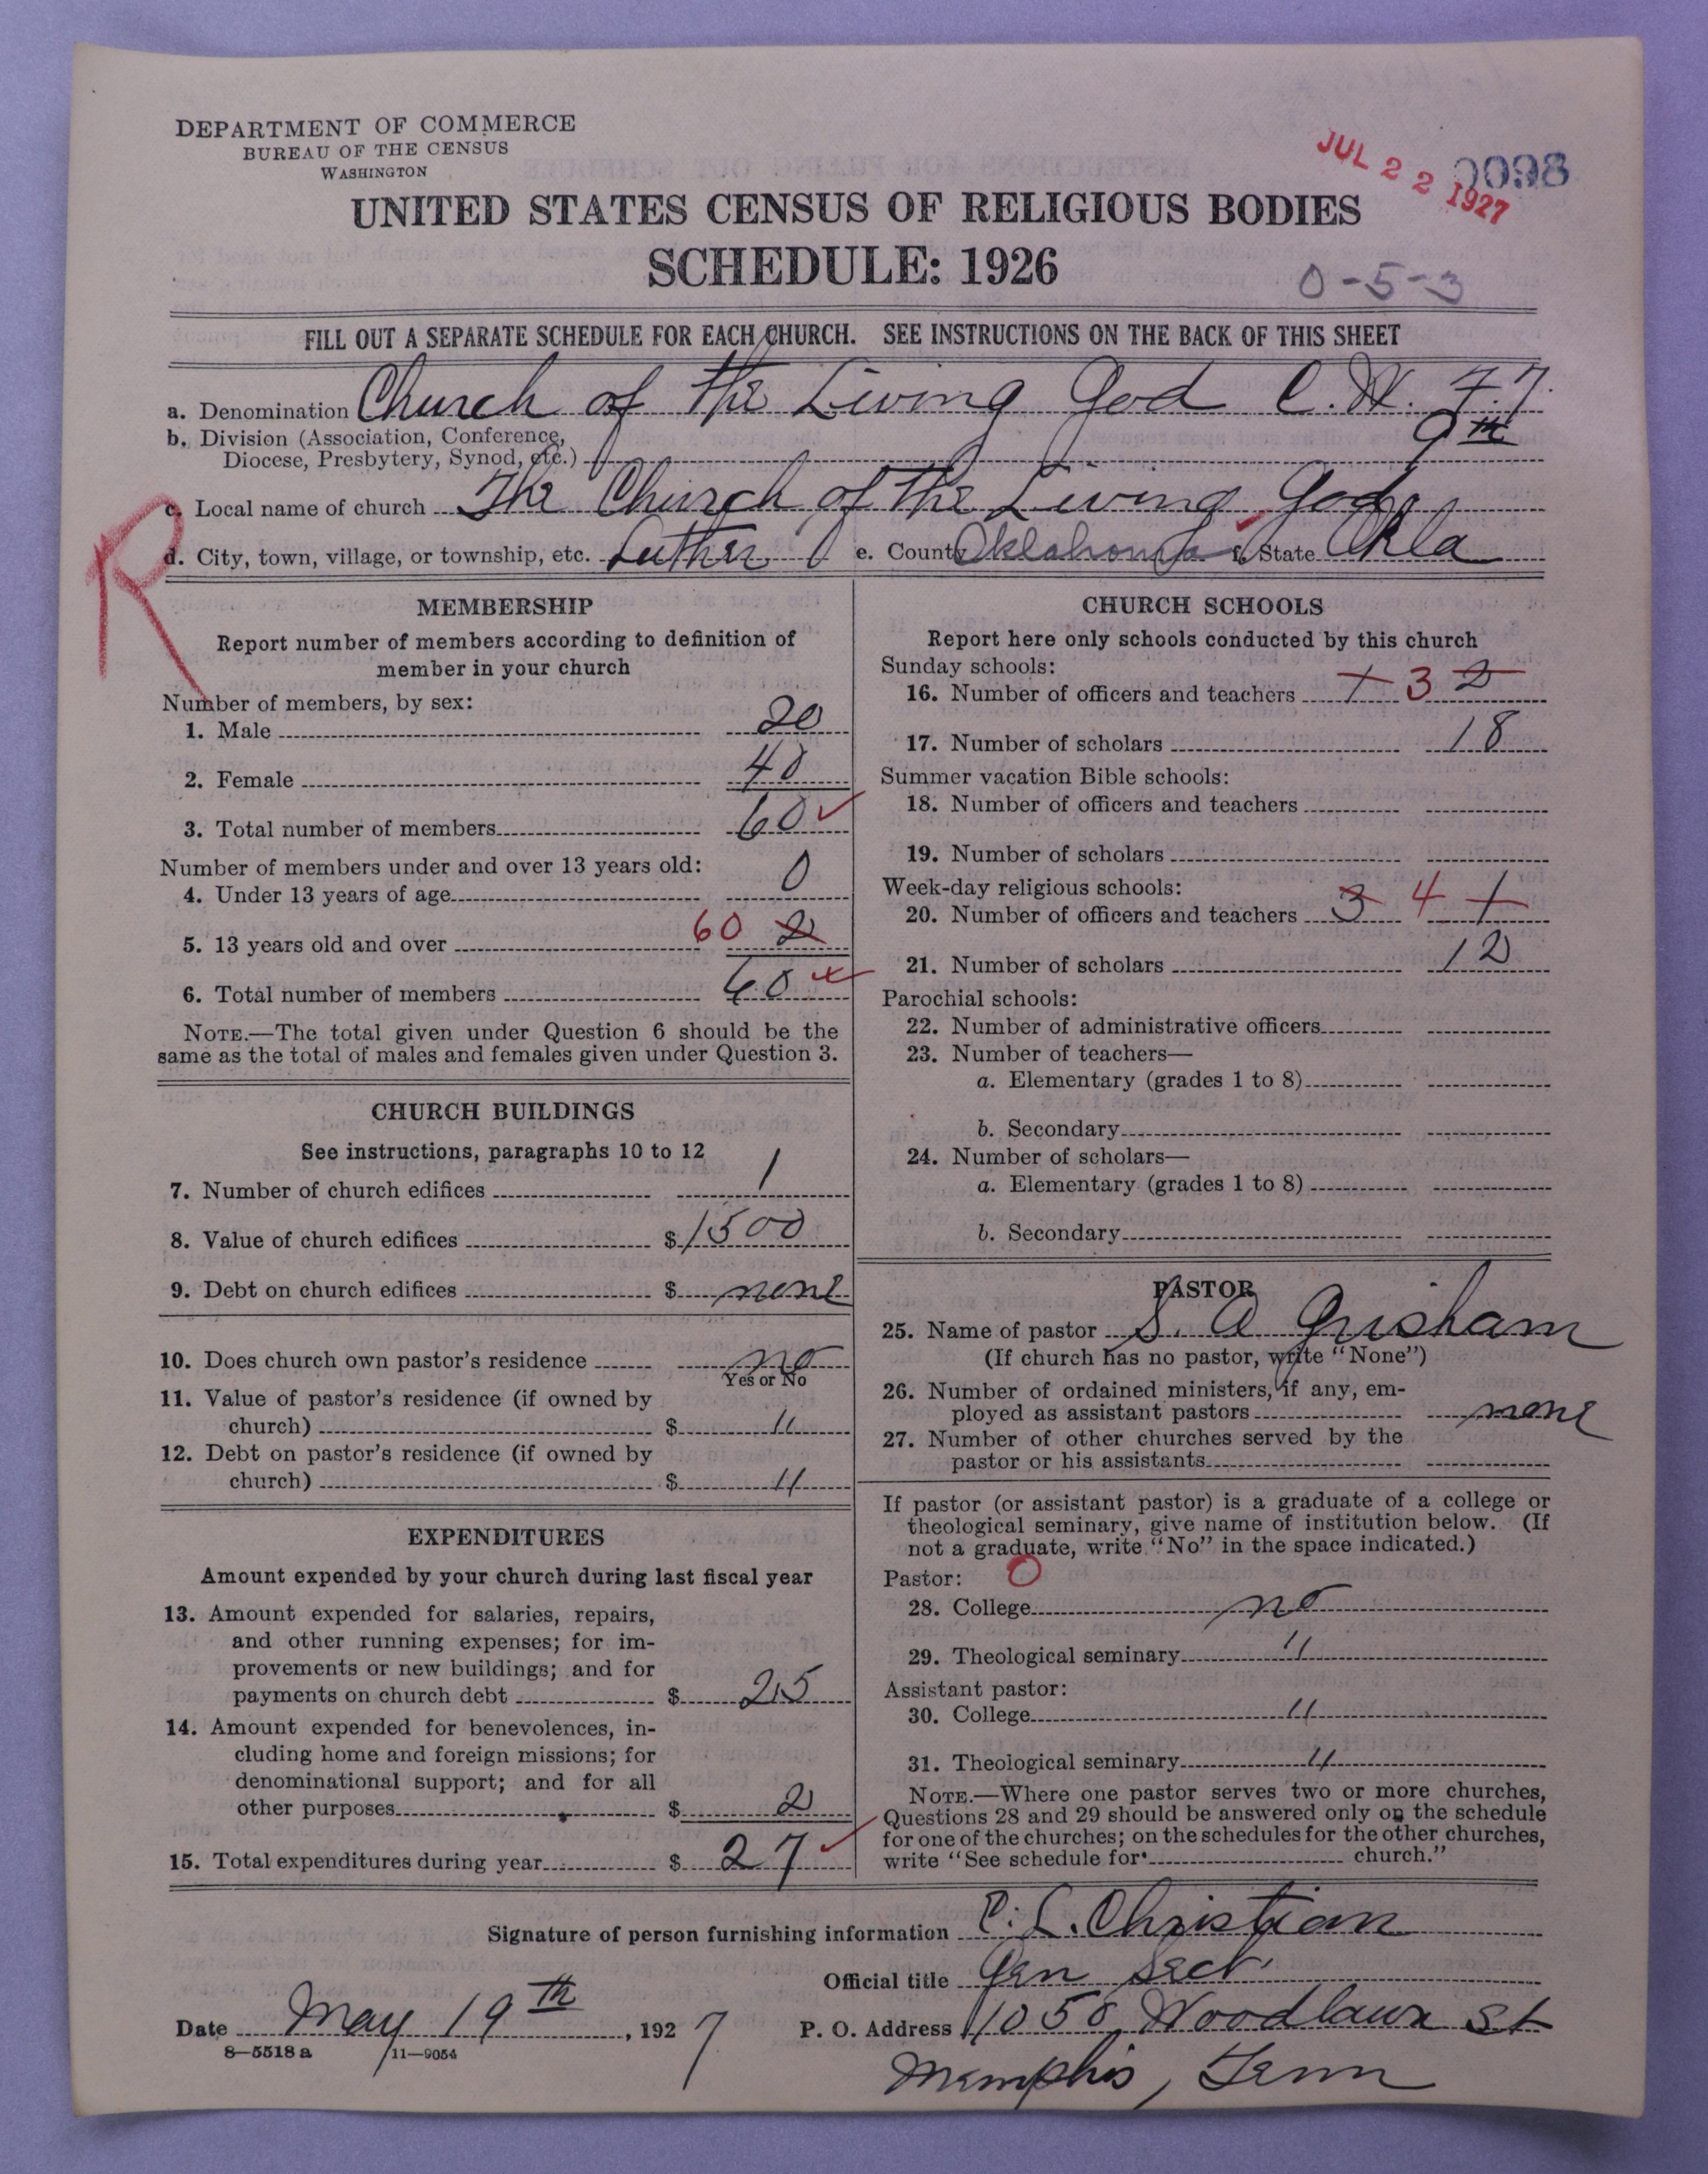 DEPARTMENT OF COMMERCE
BUREAU OF THE CENSUS
WASHINGTON
JUL 22 1927
0098
UNITED STATES CENSUS OF RELIGIOUS BODIES
SCHEDULE: 1926
0-5-3
FILL OUT A SEPARATE SCHEDULE FOR EACH CHURCH. SEE INSTRUCTIONS ON THE BACK OF THIS SHEET
a. Denomination Church of the Living God C. W. F. F.
b. Division (Association, Conference, 9th
Diocese, Presbytery, Synod, etc.)
R
c. Local name of church The Church of the Living God
d. City, town, village, or township, etc. Luther e. County Oklahoma f. State Okla
MEMBERSHIP
Report number of members according to definition of
member in your church
Number of members, by sex:
1. Male 20
2. Female 40
3. Total number of members 60
Number of members under and over 13 years old:
4. Under 13 years of age 0
5. 13 years old and over 60 2
6. Total number of members 60
NOTE.—The total given under Question 6 should be the
same as the total of males and females given under Question 3.
CHURCH BUILDINGS
See instructions, paragraphs 10 to 12
7. Number of church edifices 1
8. Value of church edifices $ 1500
9. Debt on church edifices $ none
10. Does church own pastor's residence no
Yes or No
11. Value of pastor's residence (if owned by
church) $ "
12. Debt on pastor's residence (if owned by
church) $ "
EXPENDITURES
Amount expended by your church during last fiscal year
13. Amount expended for salaries, repairs,
and other running expenses; for im-
provements or new buildings; and for
payments on church debt $ 25
14. Amount expended for benevolences, in-
cluding home and foreign missions; for
denominational support; and for all
other purposes $ 2
15. Total expenditures during year $ 27
CHURCH SCHOOLS
Report here only schools conducted by this church
Sunday schools:
16. Number of officers and teachers 1 3 2
17. Number of scholars 18
Summer vacation Bible schools:
18. Number of officers and teachers
19. Number of scholars
Week-day religious schools:
20. Number of officers and teachers 3 4 1
21. Number of scholars 12
Parochial schools:
22. Number of administrative officers
23. Number of teachers—
a. Elementary (grades 1 to 8)
b. Secondary
24. Number of scholars—
a. Elementary (grades 1 to 8)
b. Secondary
PASTOR
25. Name of pastor S. A Grisham
(If church has no pastor, write "None")
26. Number of ordained ministers, if any, em-
ployed as assistant pastors none
27. Number of other churches served by the
pastor or his assistants
If pastor (or assistant pastor) is a graduate of a college or
theological seminary, give name of institution below. (If
not a graduate, write "No" in the space indicated.)
Pastor: 0
28. College no
29. Theological seminary "
Assistant pastor:
30. College "
31. Theological seminary "
NOTE.—Where one pastor serves two or more churches,
Questions 28 and 29 should be answered only on the schedule
for one of the churches; on the schedules for the other churches,
write "See schedule for church."
Signature of person furnishing information C. L. Christian
Official title Gen Sect.
Date May 19th, 1927
P. O. Address 1058 Woodlawn St
Memphis, Tenn
8—5518 a 11—9054